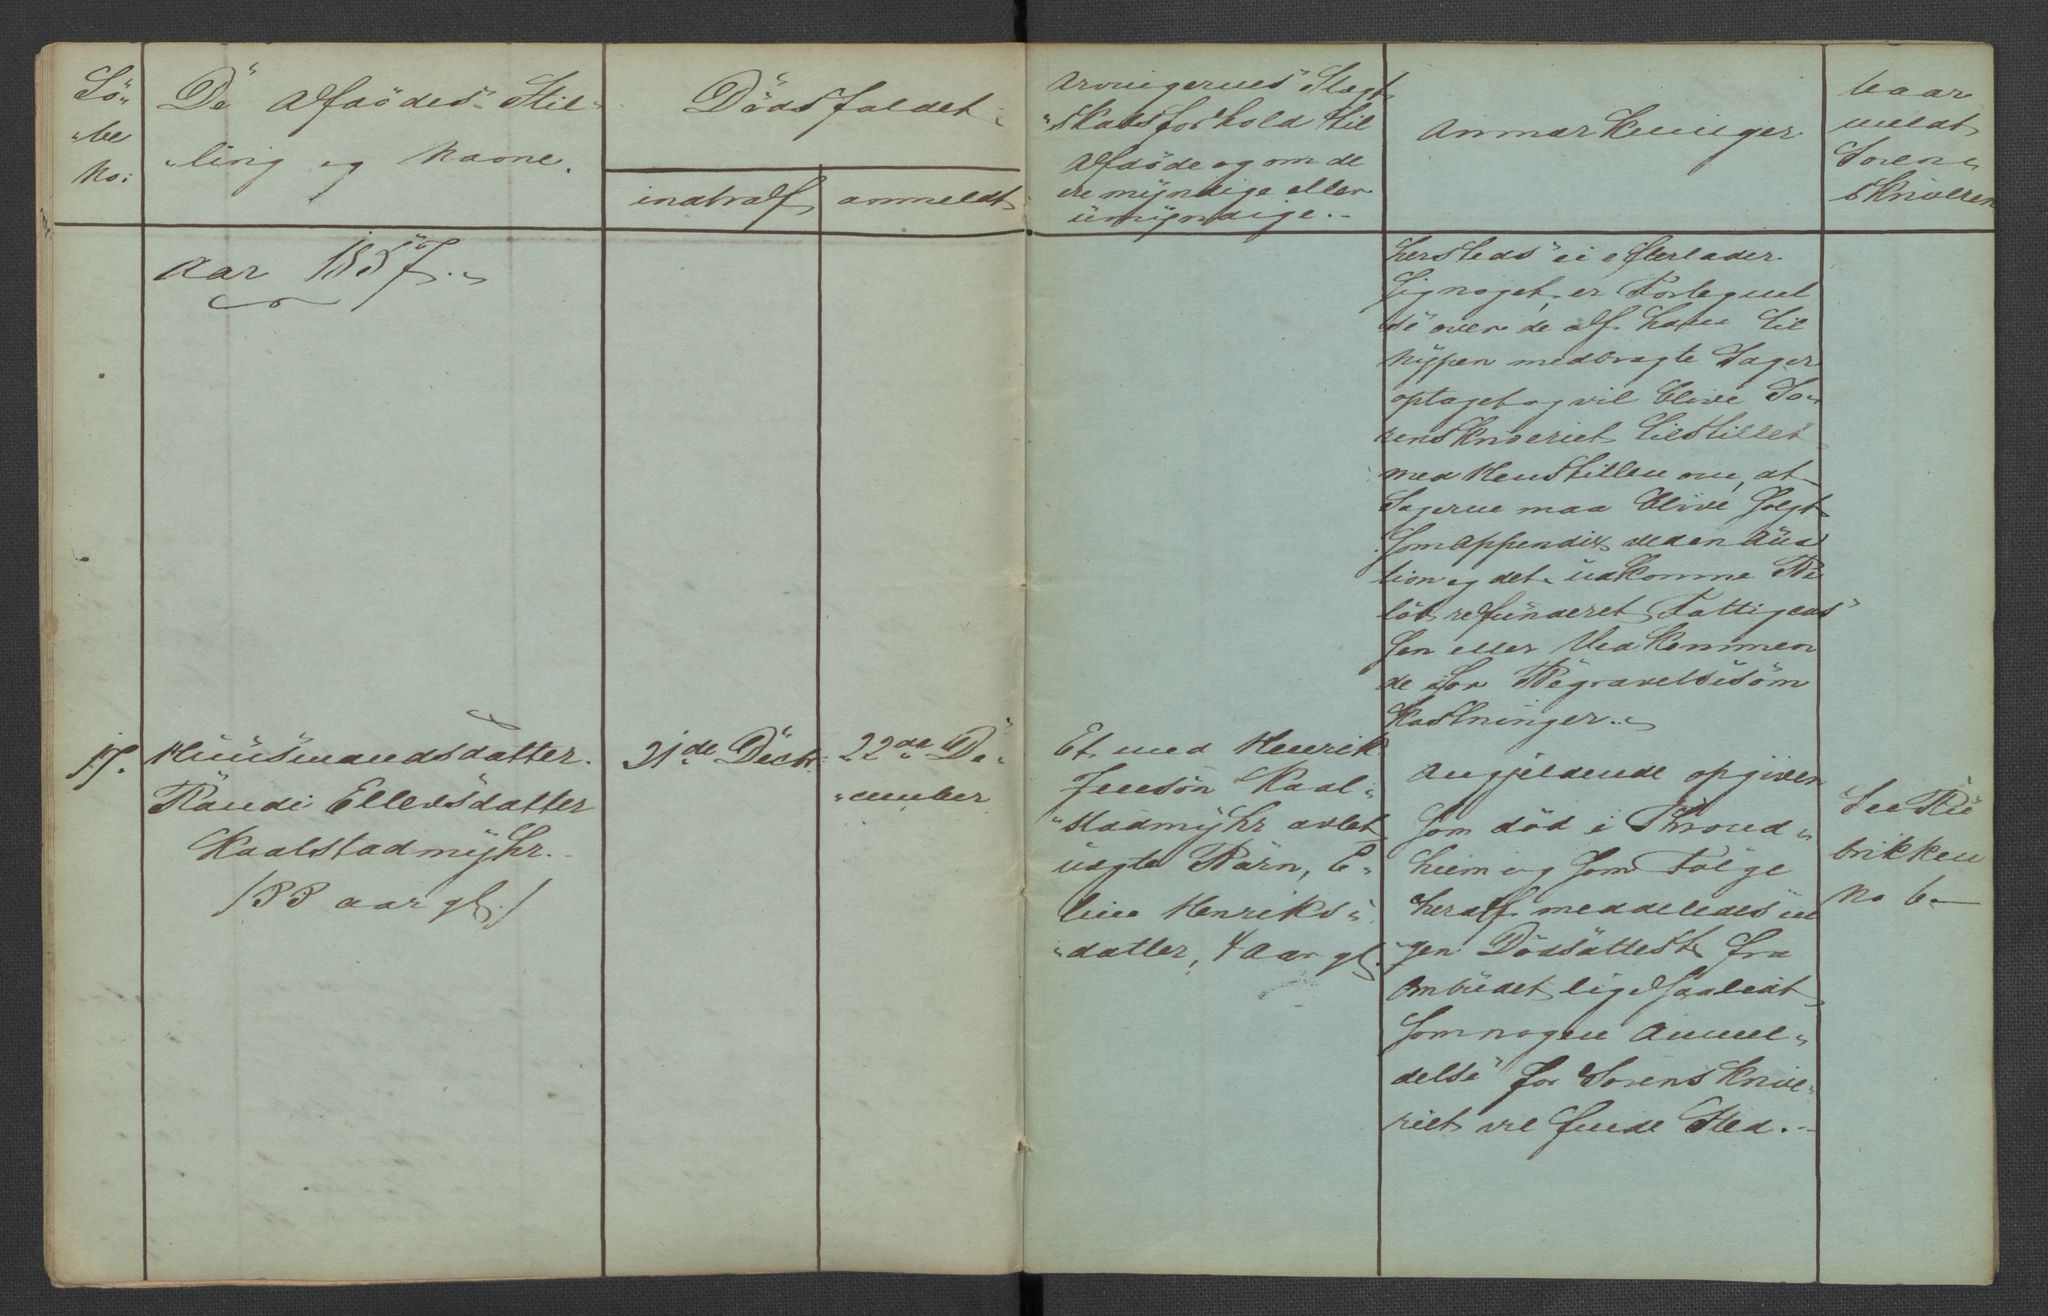 Lö-
"be
No:
De Afdödes Stil-
"ling og Navne.
Dödsfaldet
indtraf
anmeldt
Arvingernes Slægt-
"skabsforhold til
Afdöde og om de
ere myndige eller
umyndige.-
Anmærkninger
Naar
meldt
Soren-
skriveren
Aar 1857.
hersteds ei efterlader
sig noget, er Fortegnel
se over de af ham til
Nypen medbragte Sager
optaget og vil blive So-
renskriveriet tilstillet
med Henstillen om, at
Sagerne maa blive solgt
som Appendix ved en Auc
tion og det udkomme Be
löb refunderet Fattigcas
sen eller Vedkommen
de for Begravelsesom
kostninger.-
17.
Huusmandsdatter
Randi Ellevsdatter
Kaalstadmyhr.-
/33 aar gl./
21de Decbr:
22de De-
"cember
Et med Henrik
Jensön Kaal-
"stadmyhr avlet
uægte Barn, E-
line Henriks-
"datter, 4 Aar gl.
Angjeldende opgiven
som död i Thrond-
hiem og som Fölge
heraf meddeledes in
gen Dödsattest fra
Ombudet ligesaalidt
som nogen Anmel-
delse for Sorenskrive-
riet vil finde Sted.-
See Ru
brikken
No 6.-